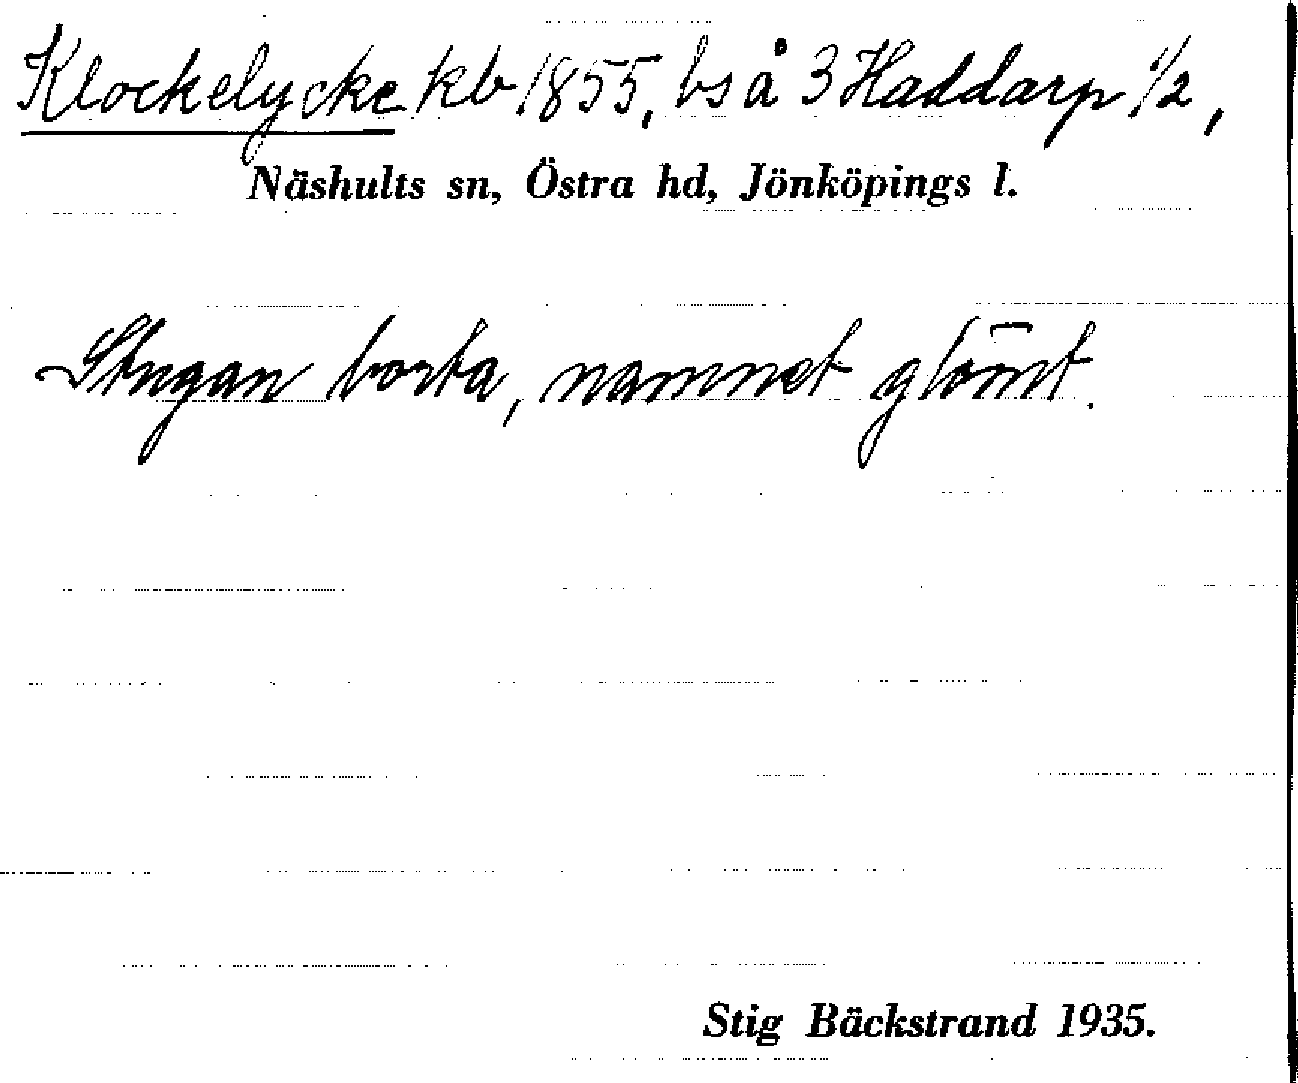 Klockelycke kb 1855, bs å 3 Haddarp 1/2,
Näshults sn, Östra hd, Jönköpings l.
Stugan borta, namnet glömt.
Stig Bäckstrand 1935.